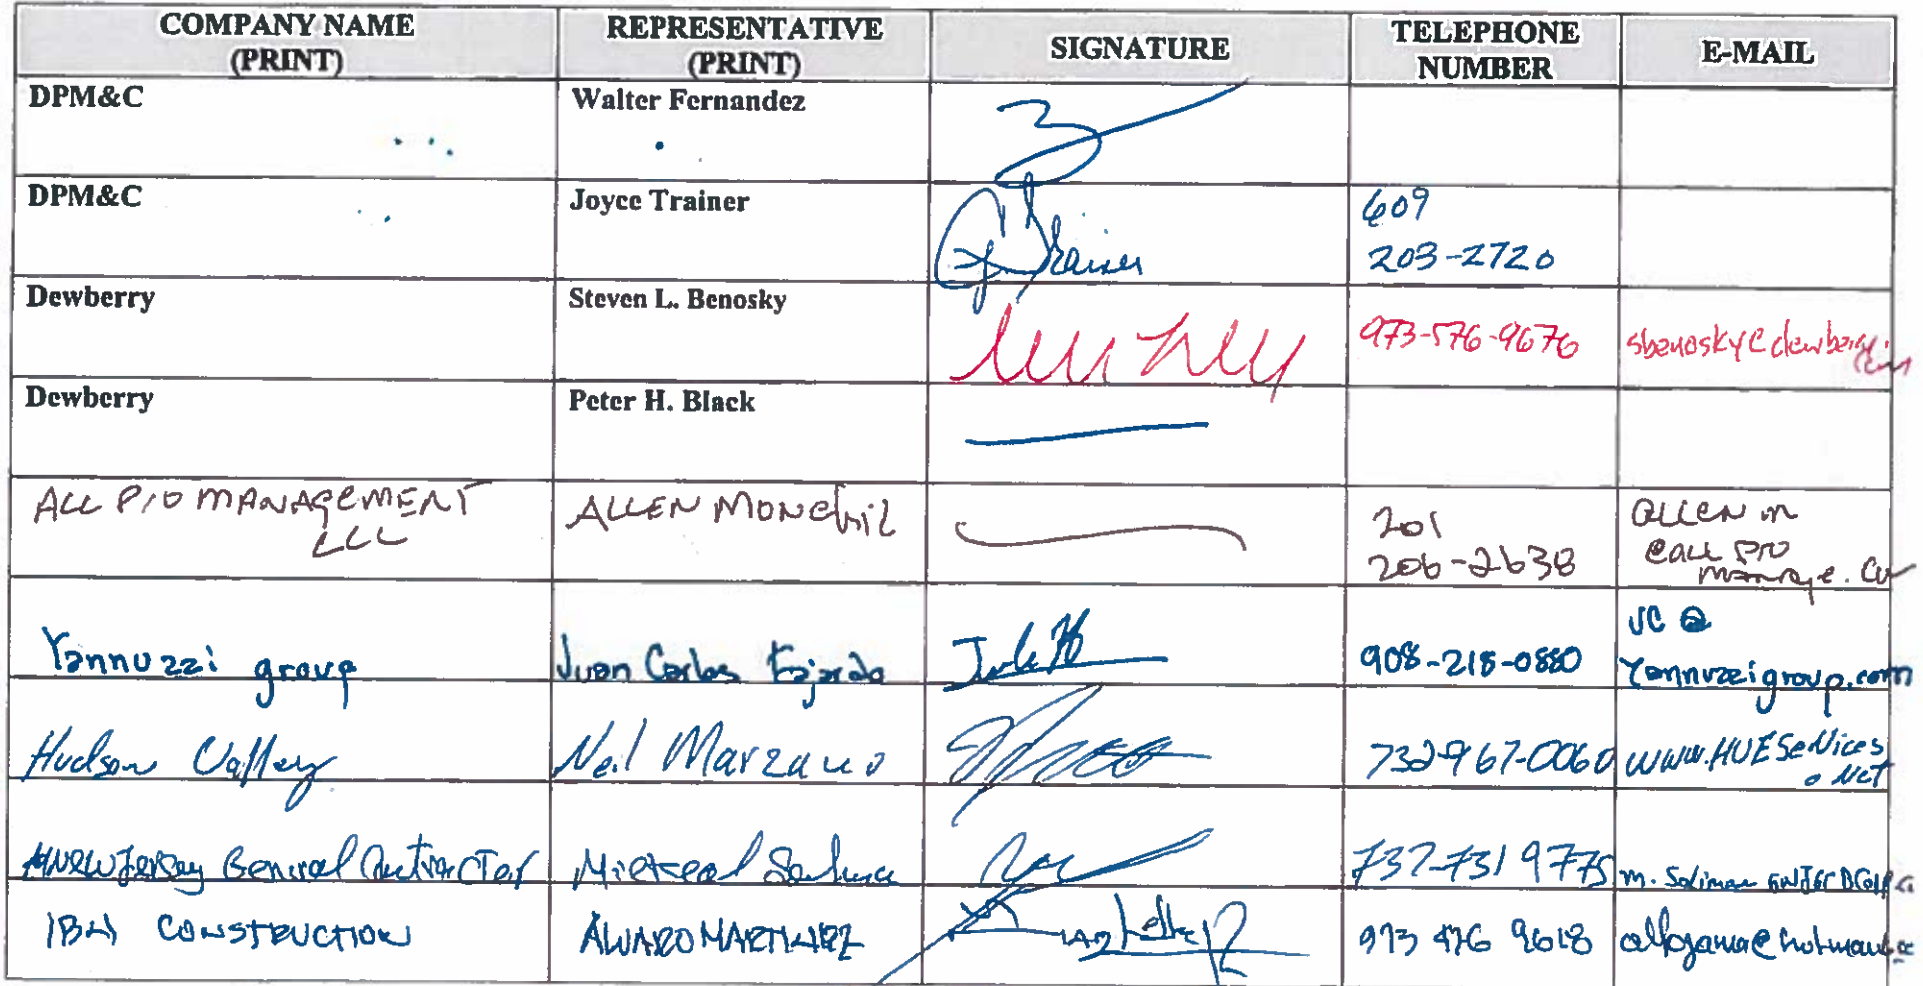 COMPANY NAME (PRINT) REPRESENTATIVE (PRINT) SIGNATURE TELEPHONE NUMBER E-MAIL
DPM&C Walter Fernandez
DPM&C Joyce Trainer 609 203-2720
Dewberry Steven L. Benosky 973-576-9676 sbenosky@dewberry.com
Dewberry Peter H. Black
ALL PRO MANAGEMENT LLC ALLEN 201 206-2638 allen m @all pro manage.
Yannuzzi group Juan Carlos Fajardo 908-218-0880 JC @ Yannuzzigroup.com
Hudson Valley Neil Marzano 732-967-0060 www.HVEServices.Net
New Jersey General Contractor 732-731 9775
CONSTRUCTION ALVARO MARTINEZ 973 476 9618